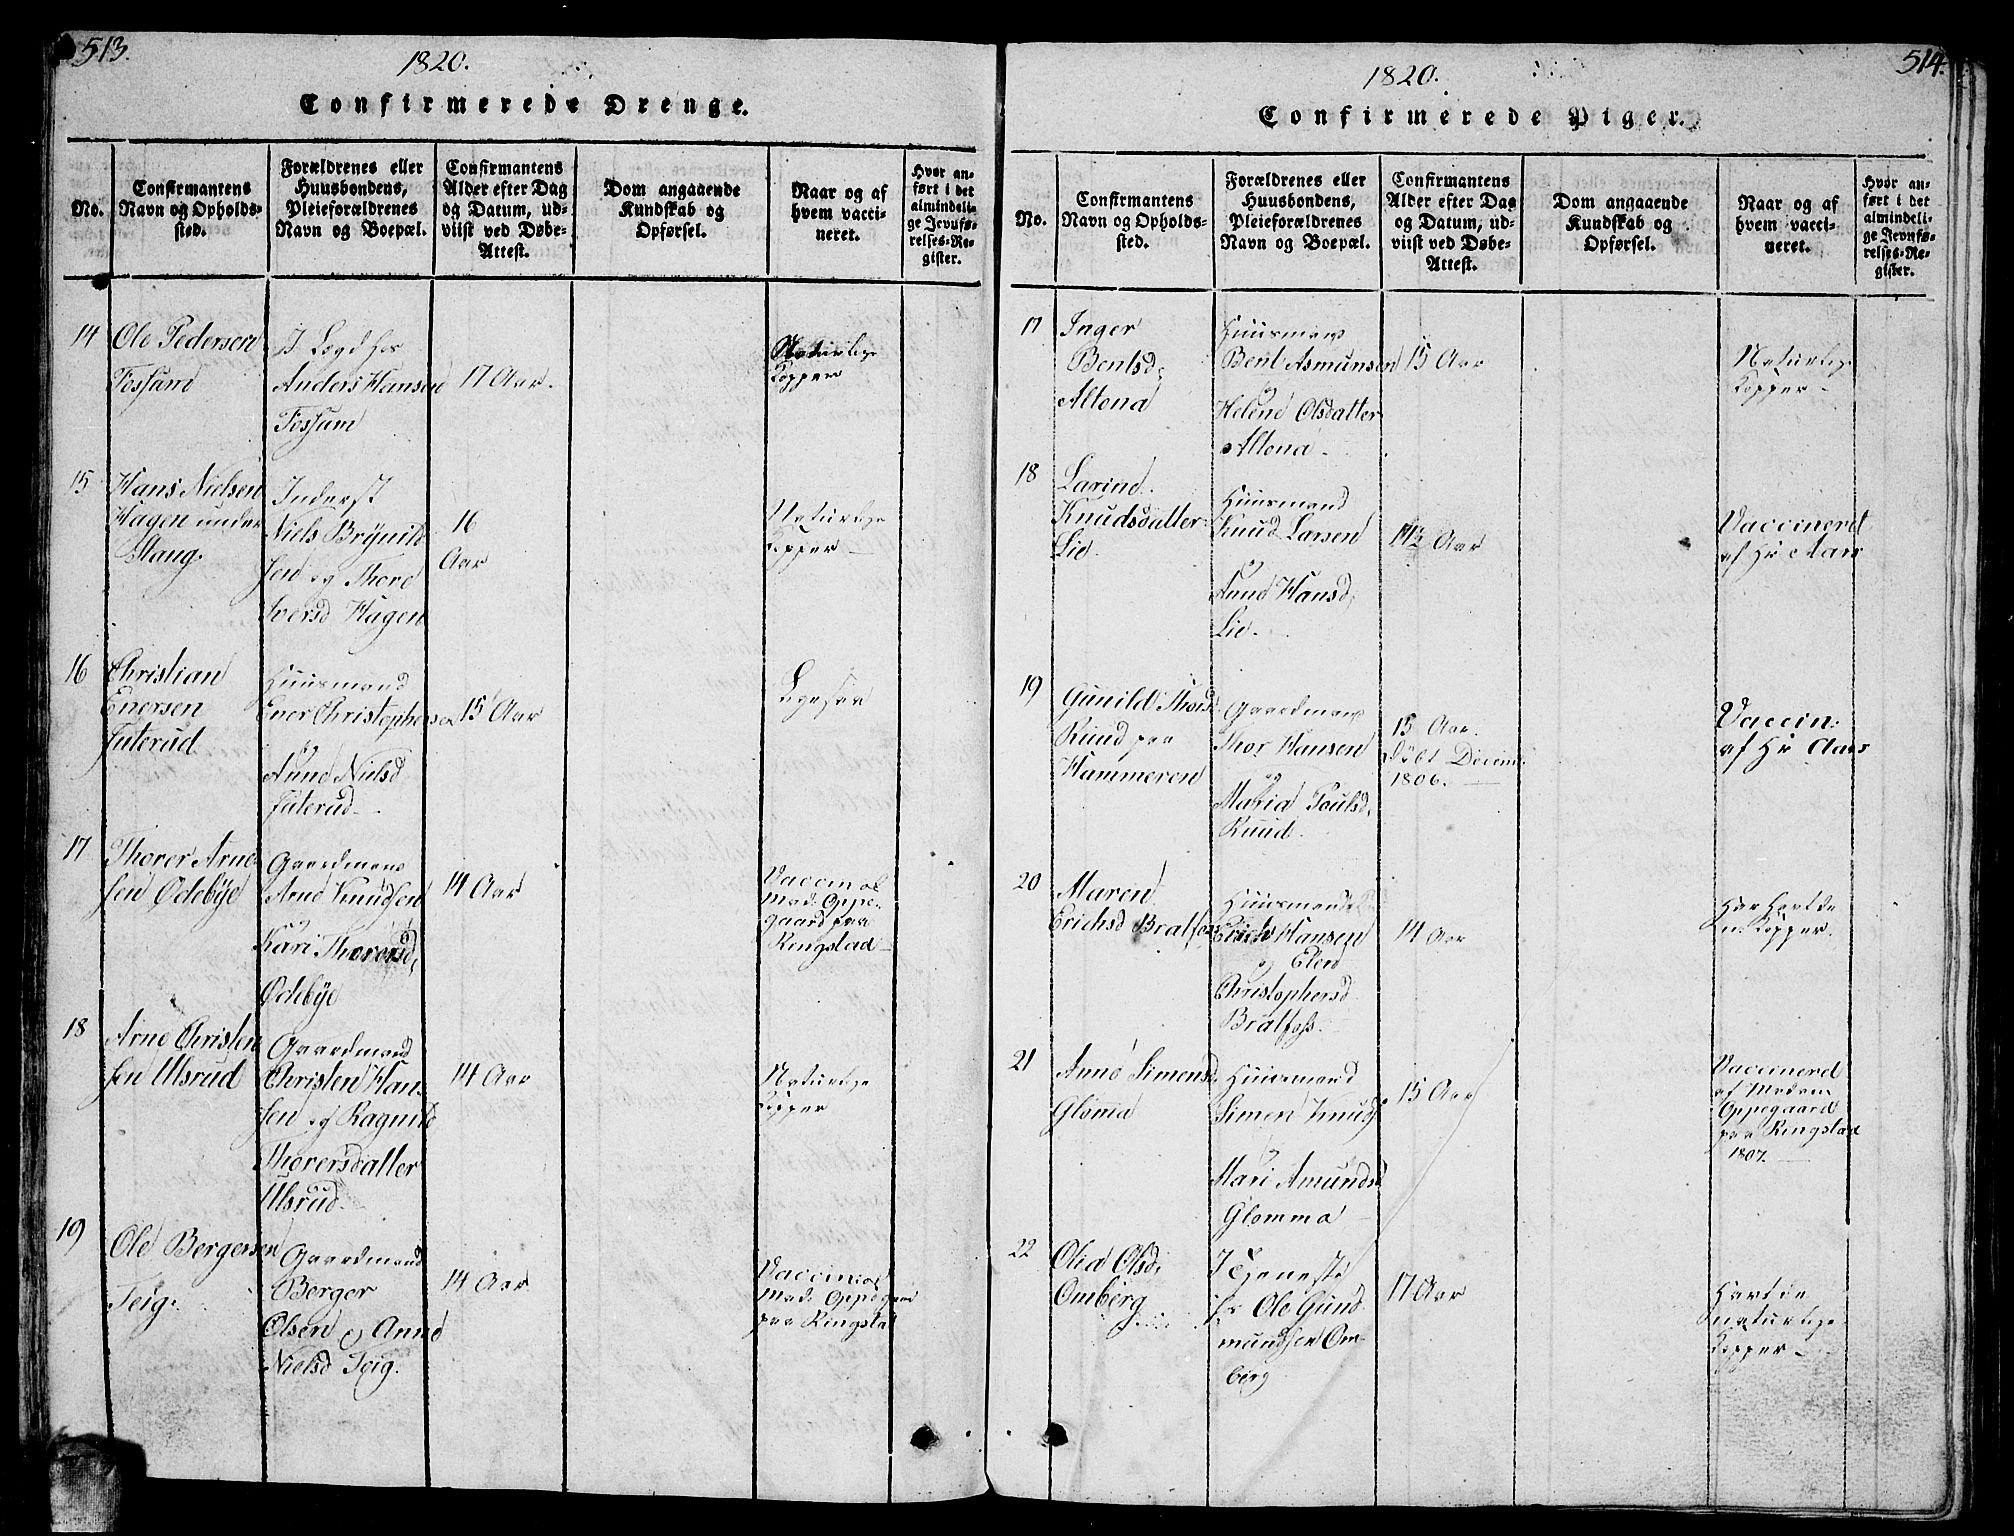 513.
1820.
Confirmerede Drenge.
No.
Confirmantens
Navn og Opholds-
sted.
Forældrenes eller
Huusbondens,
Pleieforældrenes
Navn og Boepæl.
Confirmantens
Alder efter Dag
og Datum, ud-
viist ved Døbe-
Attest.
Dom angaaende
Kundskab og
Opførsel.
Naar og af
hvem vacci-
neret.
Hvor an-
ført i det
almindeli-
ge Jevnfø-
relses-Re-
gister.
14
Ole Pedersen
Fossum
I Lægd hos
Anders Hansen
Fossum
17 Aar.
Naturlige
Kopper
15
Hans Nielsen
Hagen under
Stang.
Inderst
Niels Brynild
sen og Thore
Iversd Hagen
16
Aar
Naturlige
Kopper
16
Christian
Enersen
Juterud.
Huusmand
Ener Christophersen
og
Anne Nielsd
Juterud.
15 Aar
Ligesaa
17
Thorer Arne
sen Ødebye
Gaardmand
Arne Knudsen
og
Kari Thorersd,
Ødebye
14 Aar
Vaccin af
Mad: Oppe-
gaard paa
Ringstad
18
Arne Christen
sen Ulsrud
Gaardmand
Christen Han-
sen og Ragnild
Thorersdatter
Ulsrud.
14 Aar
Naturlige
Kopper
19
Ole Bergersen
Teig.
Gaardmand
Berger
Olsen og Anne
Nielsd Teig.
14 Aar
Vaccin af
Mad: Oppegaard
paa Ringstad
514.
1820.
Confirmerede Piger.
No.
Confirmantens
Navn og Opholds-
sted.
Forældrenes eller
Huusbondens,
Pleieforældrenes
Navn og Boepæl.
Confirmantens
Alder efter Dag
og Datum, ud-
viist ved Døbe-
Attest.
Dom angaaende
Kundskab og
Opførsel.
Naar og af
hvem vacci-
neret.
Hvor an-
ført i det
almindeli-
ge Jevnfø-
relses-Re-
gister.
17
Inger
Bentsd,
Altona
Huusmand
Bent Asmunsen
og
Helene Olsdatter
Altona.
15 Aar
Naturlige
Kopper
18
Larine
Knudsdatter
Lie.
Huusmand
Knud Larsen
og
Anne Hansd,
Lie.
14½ Aar
Vaccineret
af Hr Aars
19
Gunild Thorsd
Ruud paa
Hammeren
Gaardmand
Thor Hansen
og
Maria Poulsd,
Ruud.
15 Aar.
Døbt Decem:
1806.
Vaccin:
af Hr Aars
20
Maren
Erichsd Bratfos
Huusmand
Erich Hansen
og Elene
Christophersd
Bratfoss.
14 Aar
Har havt de
n: Kopper.
21
Anne Simensd.
Glomma
Huusmand
Simen Knuds
og
Mari Amundsd
Glomma
15 Aar
Vaccinered
af Madam
Oppegaard
paa Ringstad
1807.
22
Olia Olsd,
Omberg
I Tjeneste
hs Ole Gund
mundsen Om-
berg
17 Aar
Havt de
naturlige
Kopper